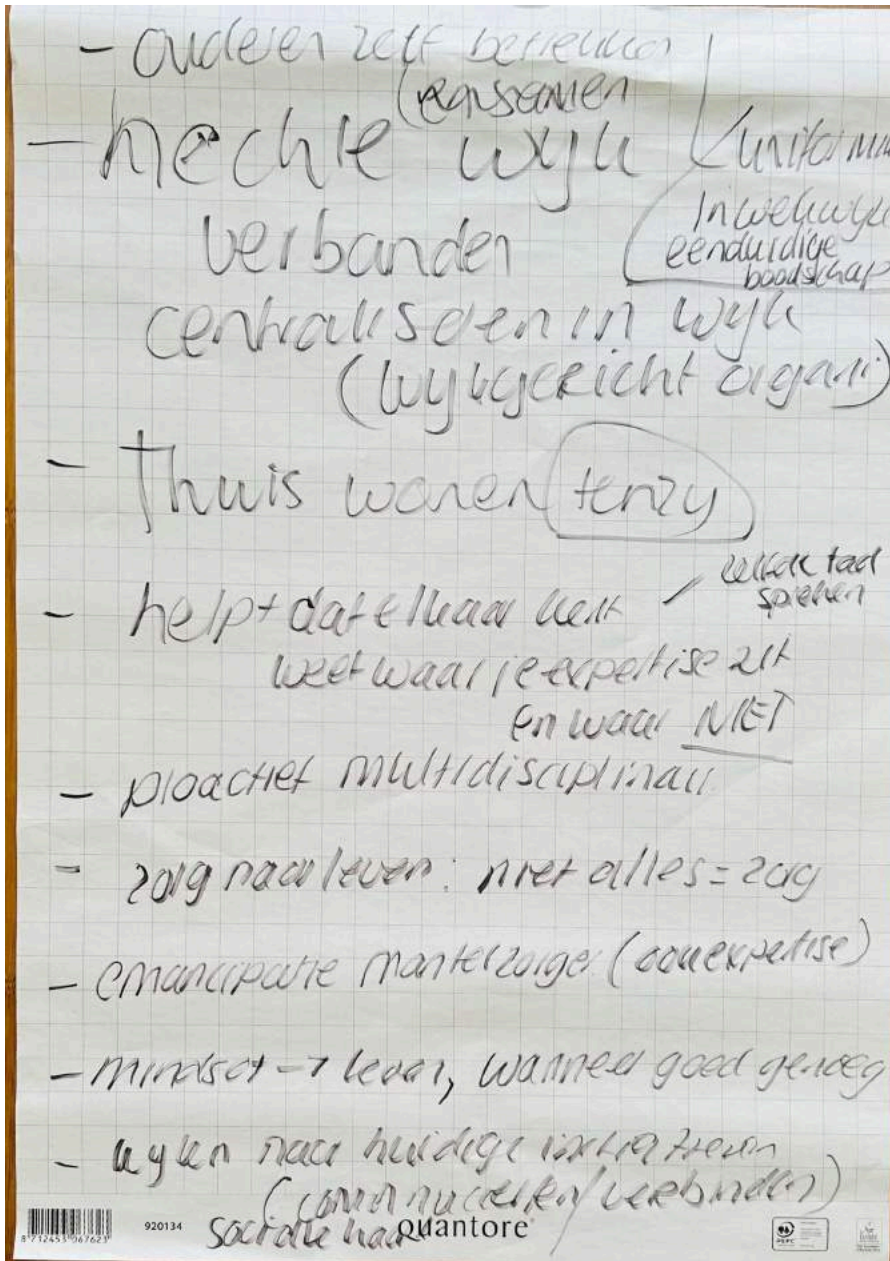 - ouderen zelf betrekken
- hechte wijk
verbanden
uniform
in welk wijk
eenduidige
boodschap
centraliseren in wijk
(wijkgericht organi)
- Thuis wonen tenzij
- helpt dat elkaar kent
zelfde taal
spreken
weet waar je expertise zit
en waar NIET
- proactief multidisciplinair
- zorg naar leven: niet alles = zorg
- emancipatie mantelzorger (ook expertise)
- mindset → leven, wanneer goed genoeg
- kijken naar huidige
(communiceren/verbinden)
sociale kaart
8 712453 067623
920134
quantore